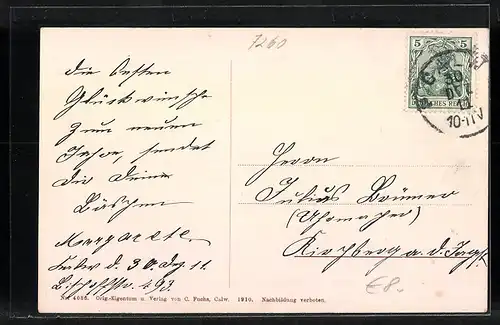 7260
die besten
Glückwünsche
zum neuen
Jahre, sendet
Dir Deine
Bäschen
Margarete.
d. 30. Dez. 11.
493.
5 5
DEUTSCHES REICH
C
30
DEZ
10-11V
Herrn
Julius Brünner
(Uhrmacher)
Kirchberg a. d. Jagst.
€8.-
No. 4036. Orig.-Eigentum u. Verlag von C. Fuchs, Calw. 1910. Nachbildung verboten.